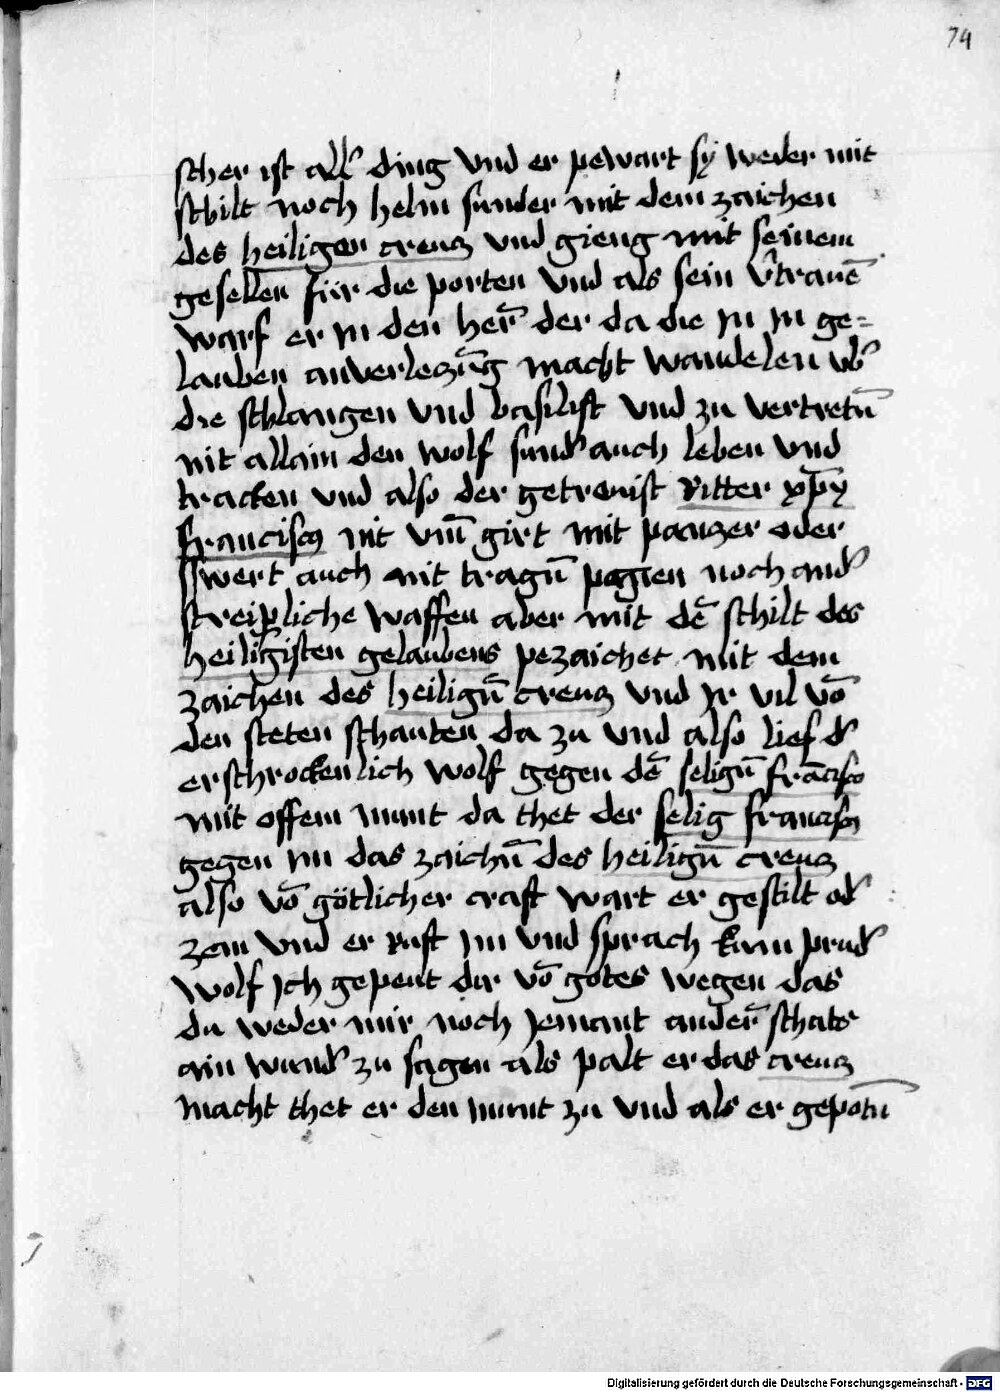 74
scher ist all' ding vnd er pewart sy weder mit
schilt noch helm sunder mit dem zaichen
des heiligen creucz vnd gieng mit seinem
gesellen für die porten vnd als sein v̄trauē
warf er in den her̄ der da die in in ge=
lauben anverleczūg macht wandelen vb'
die schlangen vnd basilist vnd zu vertretn̄
nit allain den wolf sund' auch leben vnd
tracken vnd also der getrewist Ritter xp̄i
franciscus nit vm̄girt mit panzer oder
swert auch nit tragn̄ pogen noch and'
streipliche waffen aber mit dē schilt des
heiligisten gelaubens pezaichet mit dem
zaichen des heilign̄ creucz vnd Ir vil vō
den steten schauten da zu vnd also lief d'
erschrockenlich wolf gegen dē selign̄ frācisco
mit offem munt da thet der selig franciscus
gegen im das zaichn̄ des heilign̄ creucz
also vō götlicher craft wart er gestilt od'
zem vnd er Ruft im vnd sprach kum prud'
wolf Ich gepeut dir vō gotes wegen das
du weder mir noch Jemant ander̄ schats
ain wund' zu sagen als palt er das creucz
macht thet er den munt zu vnd als er gepotn̄
Digitalisierung gefördert durch die Deutsche Forschungsgemeinschaft - DFG